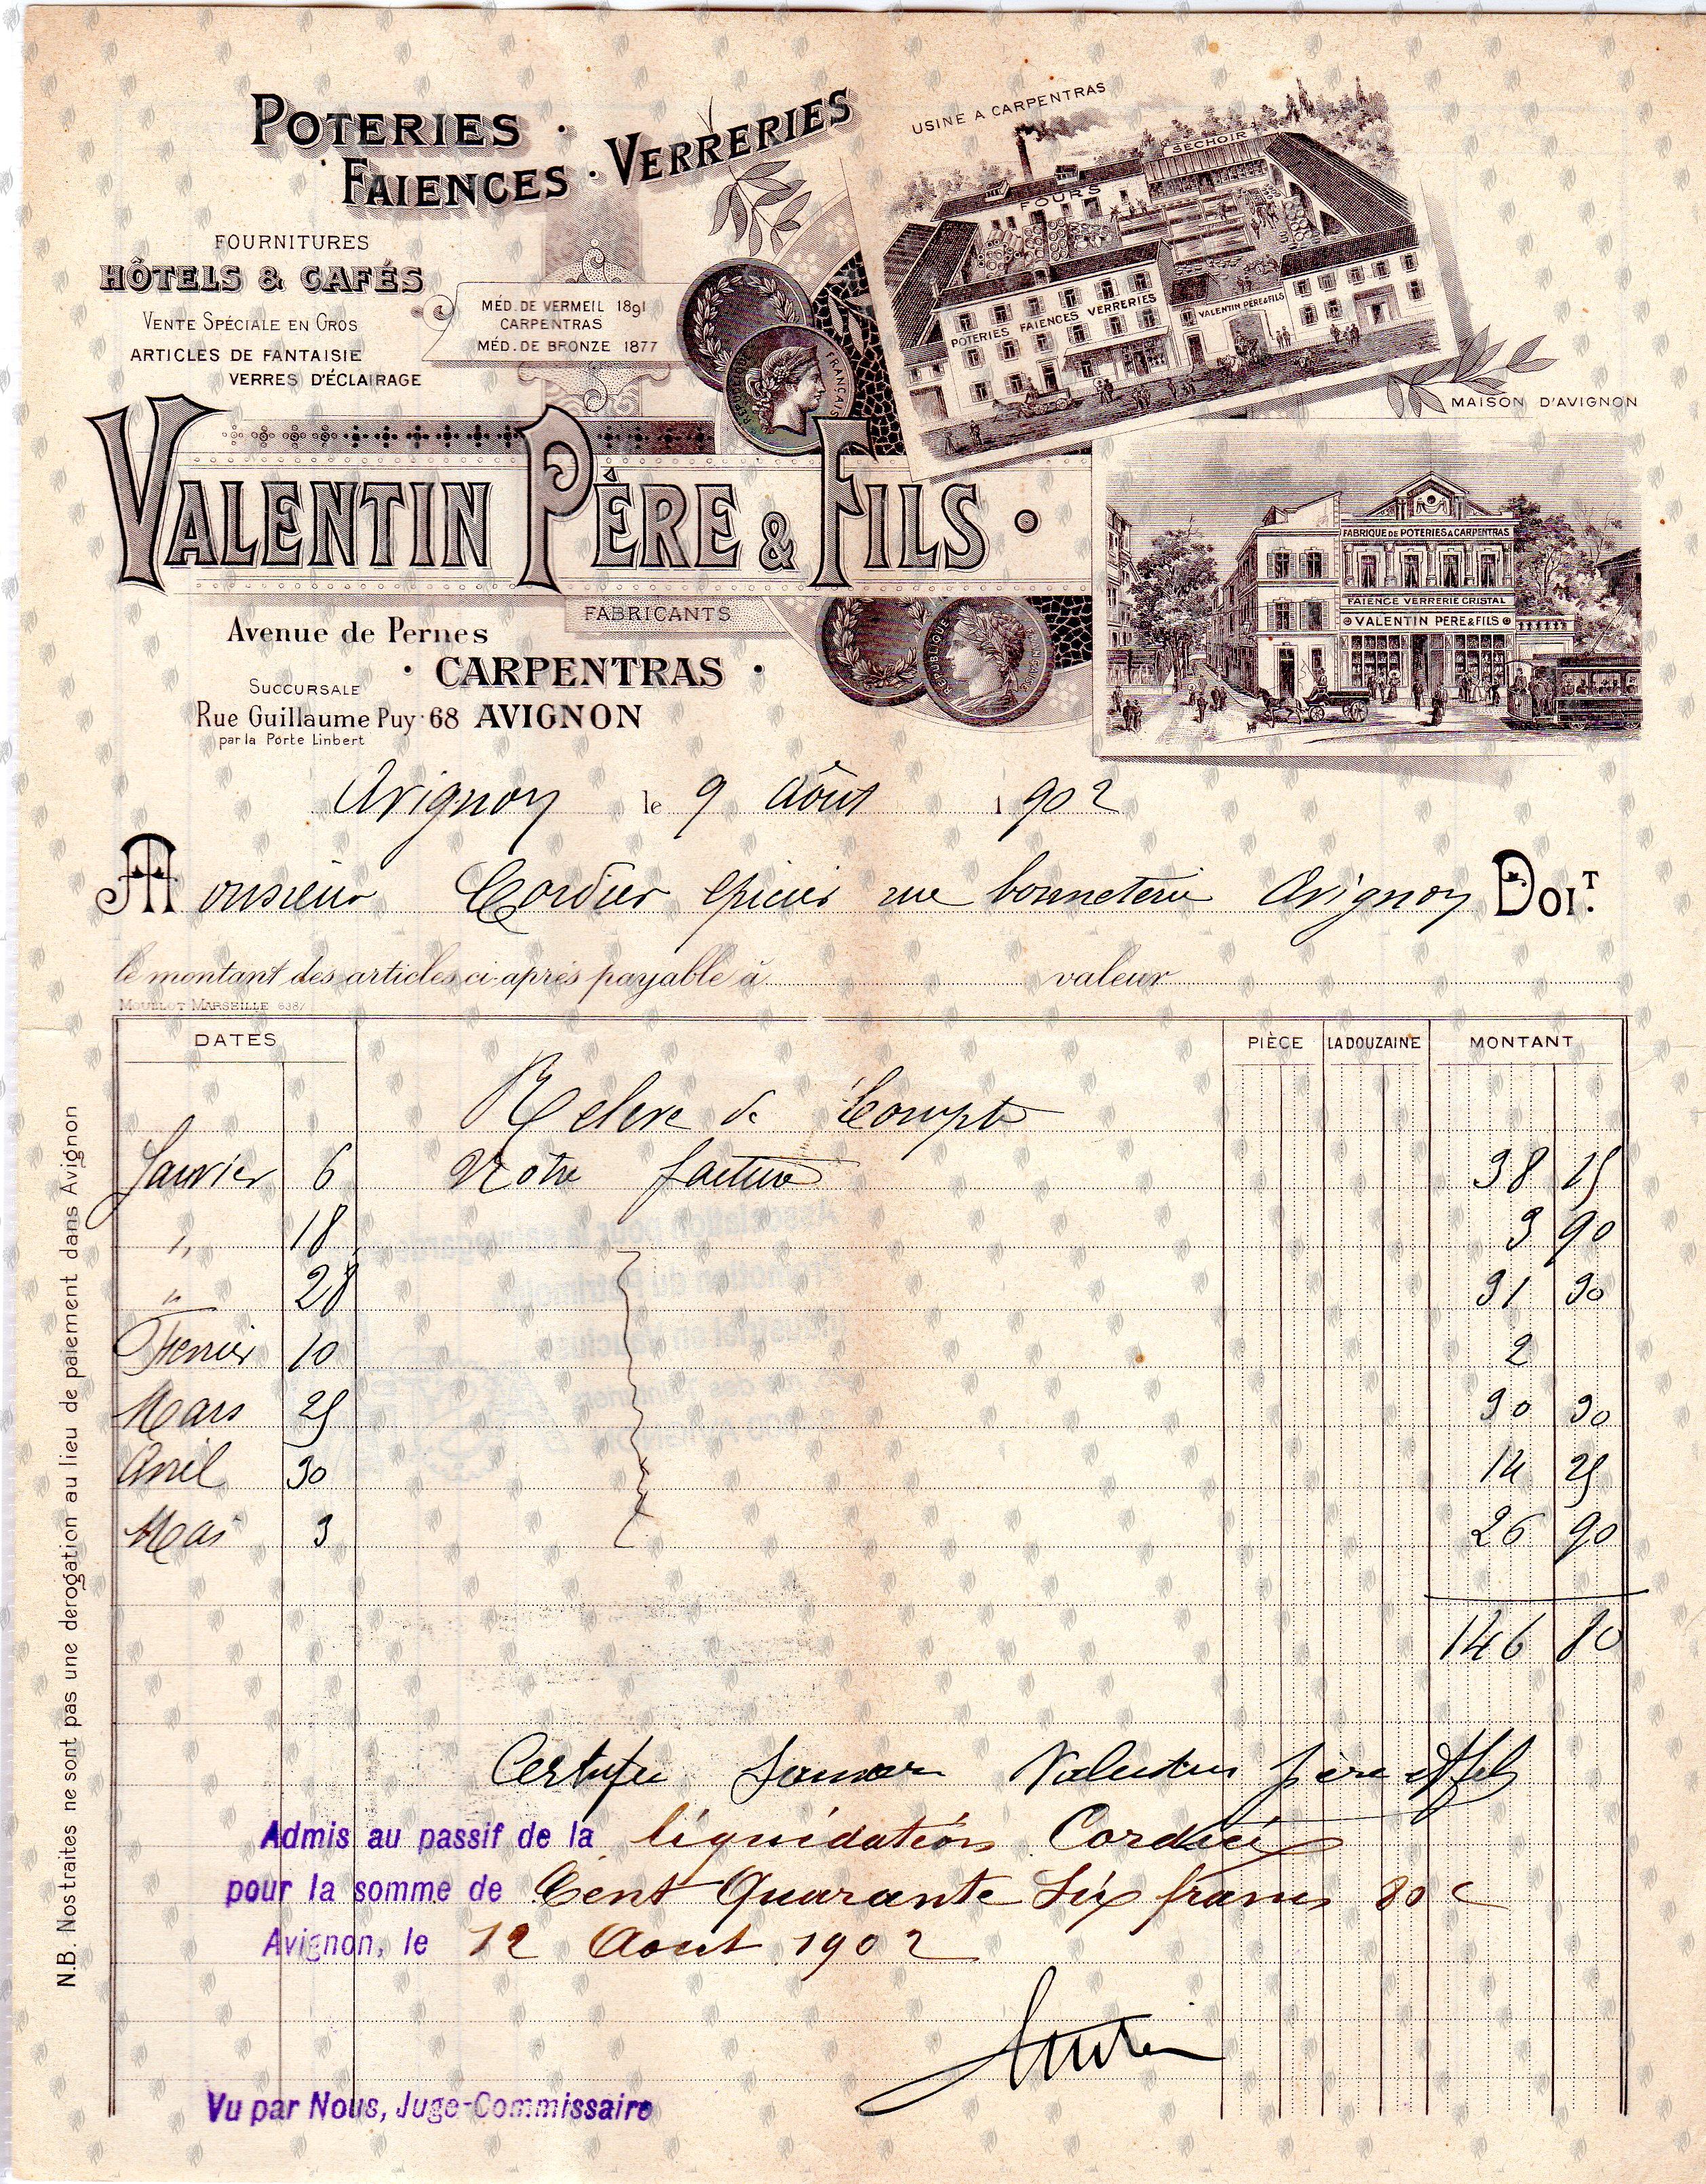 POTERIES ·
· FAIENCES · VERRERIES
FOURNITURES
HÔTELS & CAFÉS
VENTE SPÉCIALE EN GROS
ARTICLES DE FANTAISIE
VERRES D'ÉCLAIRAGE
MÉD. DE VERMEIL 1891
CARPENTRAS
MÉD. DE BRONZE 1877
USINE A CARPENTRAS
SECHOIR
FOURS
POTERIES FAIENCES VERRERIES
VALENTIN PÈRE & FILS
MAISON D'AVIGNON
FABRIQUE DE POTERIES A CARPENTRAS
FAIENCE VERRERIE CRISTAL
VALENTIN PERE & FILS
VALENTIN PÈRE & FILS ·
FABRICANTS
RÉPUBLIQUE FRANÇAISE
Avenue de Pernes
· CARPENTRAS ·
SUCCURSALE
Rue Guillaume Puy · 68 AVIGNON
par la Porte Linbert
Avignon le 9 Août 1902
Monsieur Cordier épicier rue bonneterie Avignon DOIT.
le montant des articles ci-après payable à valeur
MOULLOT MARSEILLE 6387
DATES PIÈCE LA DOUZAINE MONTANT
Releve de Compte
Janvier 6 Notre facture 38 15
" 18 3 90
" 28 31 30
Fevrier 10 2
Mars 25 30 30
Avril 30 14 25
Mai 3 26 90
146 80
Certifie Valentin père et fils
Admis au passif de la liquidation Cordier
pour la somme de Cent Quarante Six francs 80 c
Avignon, le 12 Aout 1902
Vu par Nous, Juge-Commissaire
N.B. Nos traites ne sont pas une derogation au lieu de paiement dans Avignon